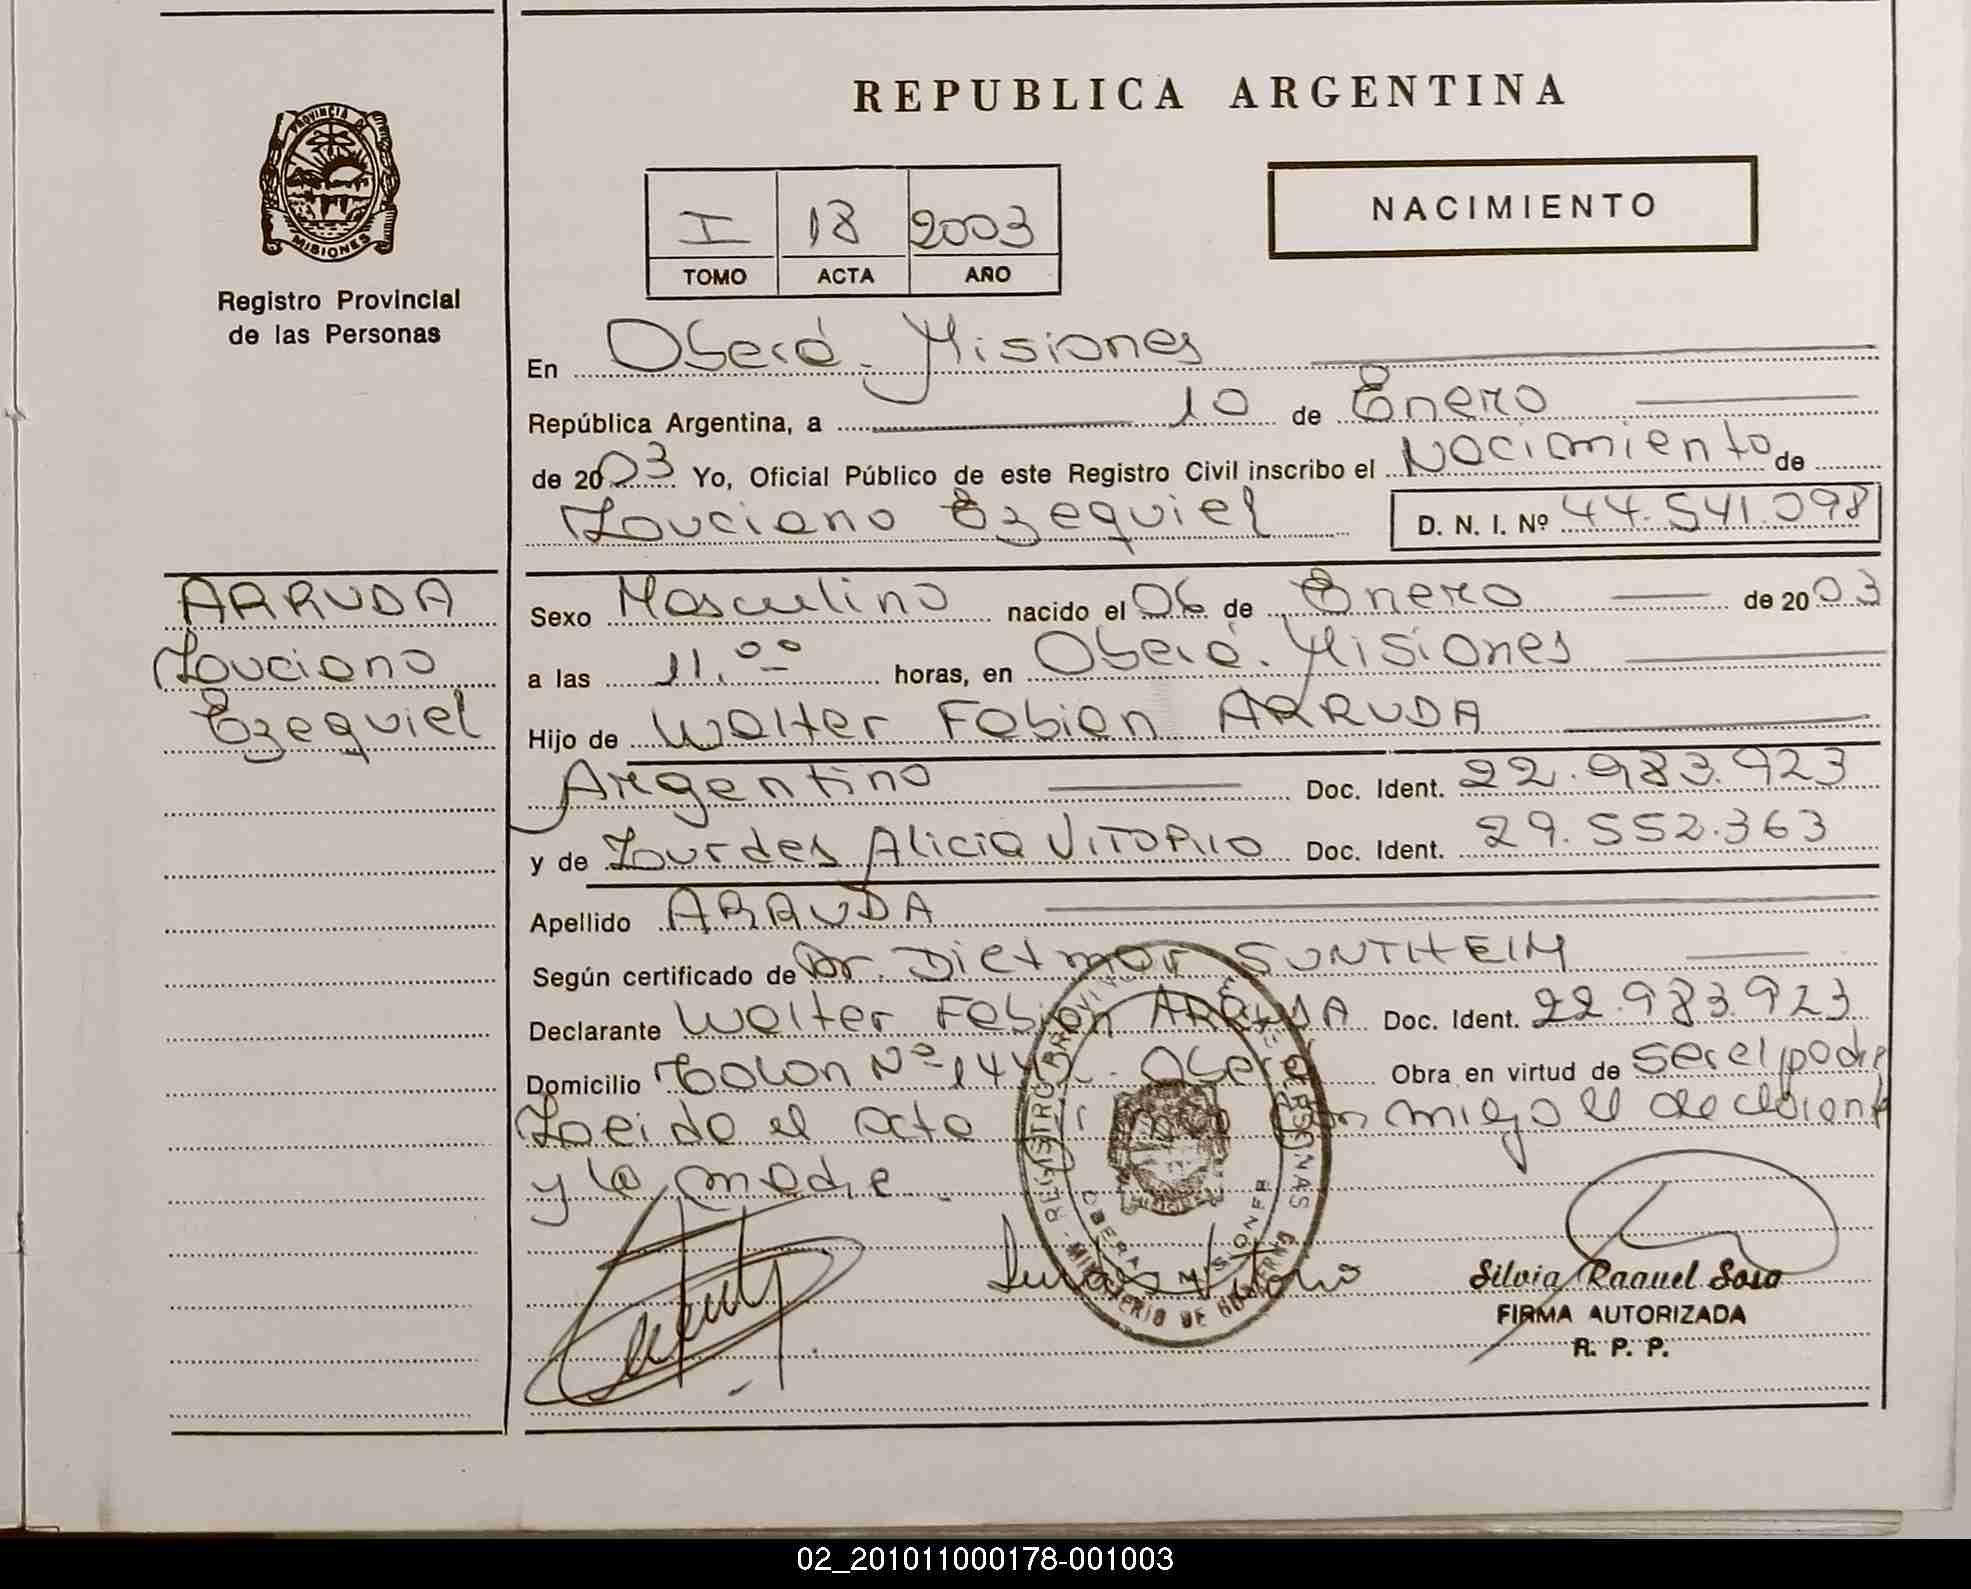 REPUBLICA ARGENTINA
PROVINCIA DE
MISIONES
Registro Provincial
de las Personas
I 18 2003
TOMO ACTA AÑO
NACIMIENTO
En Oberá. Misiones
República Argentina, a 10 de Enero
de 2003 Yo, Oficial Público de este Registro Civil inscribo el Nacimiento de
Louciano Ezequiel D. N. I. Nº 44.541.098
ARRUDA
Louciano
Ezequiel
Sexo Masculino nacido el 06 de Enero de 2003
a las 11.00 horas, en Oberá. Misiones
Hijo de Walter Fabian ARRUDA
Argentino Doc. Ident. 22.983.923
y de Lourdes Alicia VITORIO Doc. Ident. 29.552.363
Apellido ARRUDA
Según certificado de Dr. Dietmar SUNTHEIM
Declarante Walter Fabian ARRUDA Doc. Ident. 22.983.923
Domicilio Colon Nº Oberá Obra en virtud de ser el padre
Leido el acta conmigo el declarante
y la madre
MINISTERIO DE GOBIERNO
OBERA MISIONES
Silvia Raquel Sosa
FIRMA AUTORIZADA
R. P. P.
02_201011000178-001003